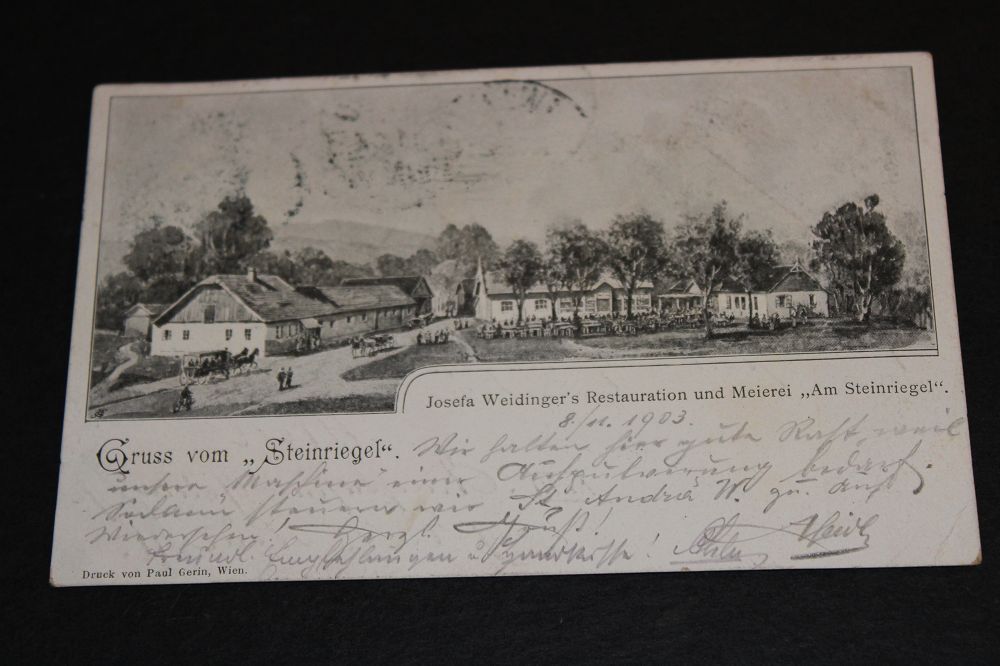 Josefa Weidinger's Restauration und Meierei „Am Steinriegel“.
8./11. 1903.
Gruss vom „Steinriegel“.
Wir halten hier gute Rast, weil
unsere Maschine einer Aufpulverung bedarf.
Sodann steuern wir St. Andrä W. zu. Auf
Wiedersehen! Herzl. Gruß!
Freundl. Empfehlungen u. Handküsse!
Druck von Paul Gerin, Wien.